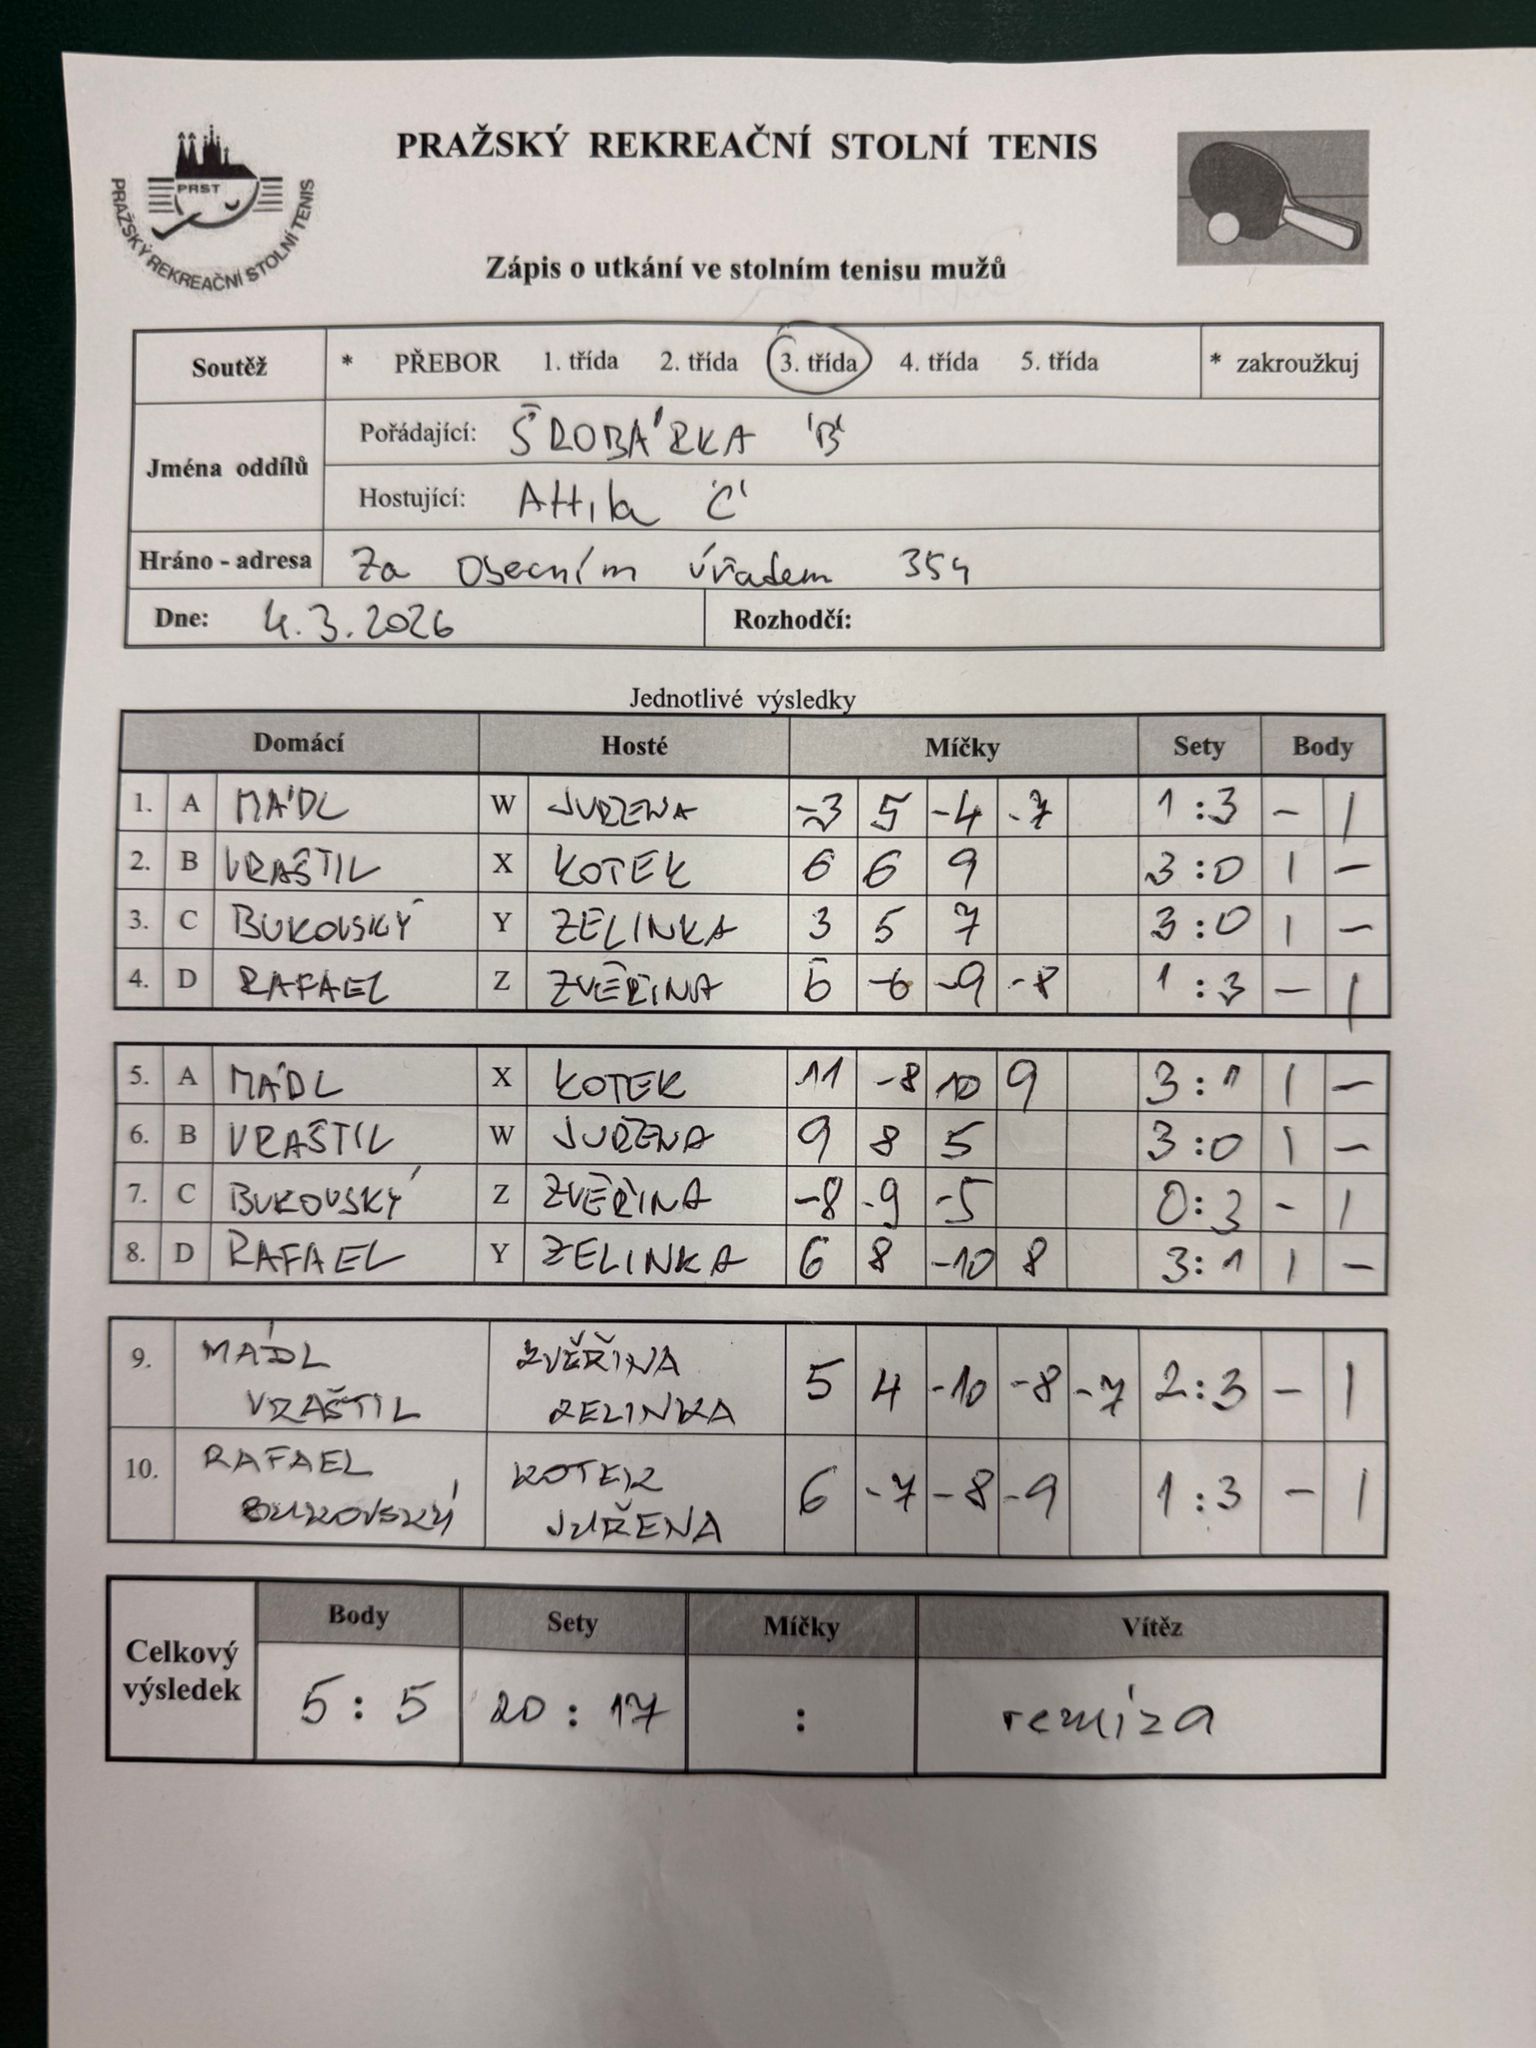 PRAŽSKÝ REKREAČNÍ STOLNÍ TENIS
PRST
PRAŽSKÝ REKREAČNÍ STOLNÍ TENIS
Zápis o utkání ve stolním tenisu mužů
Soutěž * PŘEBOR 1. třída 2. třída 3. třída 4. třída 5. třída * zakroužkuj
Jména oddílů
Pořádající: ŠROBÁRKA 'B'
Hostující: Attila 'C'
Hráno - adresa Za Obecním úřadem 354
Dne: 4.3.2026 Rozhodčí:
Jednotlivé výsledky
Domácí Hosté Míčky Sety Body
1. A MÁDL W JUŘENA -3 5 -4 -7 1:3 - 1
2. B VRAŠTIL X KOTEK 6 6 9 3:0 1 -
3. C BUKOVSKÝ Y ZELINKA 3 5 7 3:0 1 -
4. D RAFAEL Z ZVĚŘINA 6 -6 -9 -8 1:3 - 1
5. A MÁDL X KOTEK 11 -8 10 9 3:1 1 -
6. B VRAŠTIL W JUŘENA 9 8 5 3:0 1 -
7. C BUKOVSKÝ Z ZVĚŘINA -8 -9 -5 0:3 - 1
8. D RAFAEL Y ZELINKA 6 8 -10 8 3:1 1 -
9. MÁDL ZVĚŘINA 5 4 -10 -8 -7 2:3 - 1
VRAŠTIL ZELINKA
10. RAFAEL KOTEK 6 -7 -8 -9 1:3 - 1
BUKOVSKÝ JUŘENA
Celkový výsledek
Body Sety Míčky Vítěz
5:5 20:17 : remíza